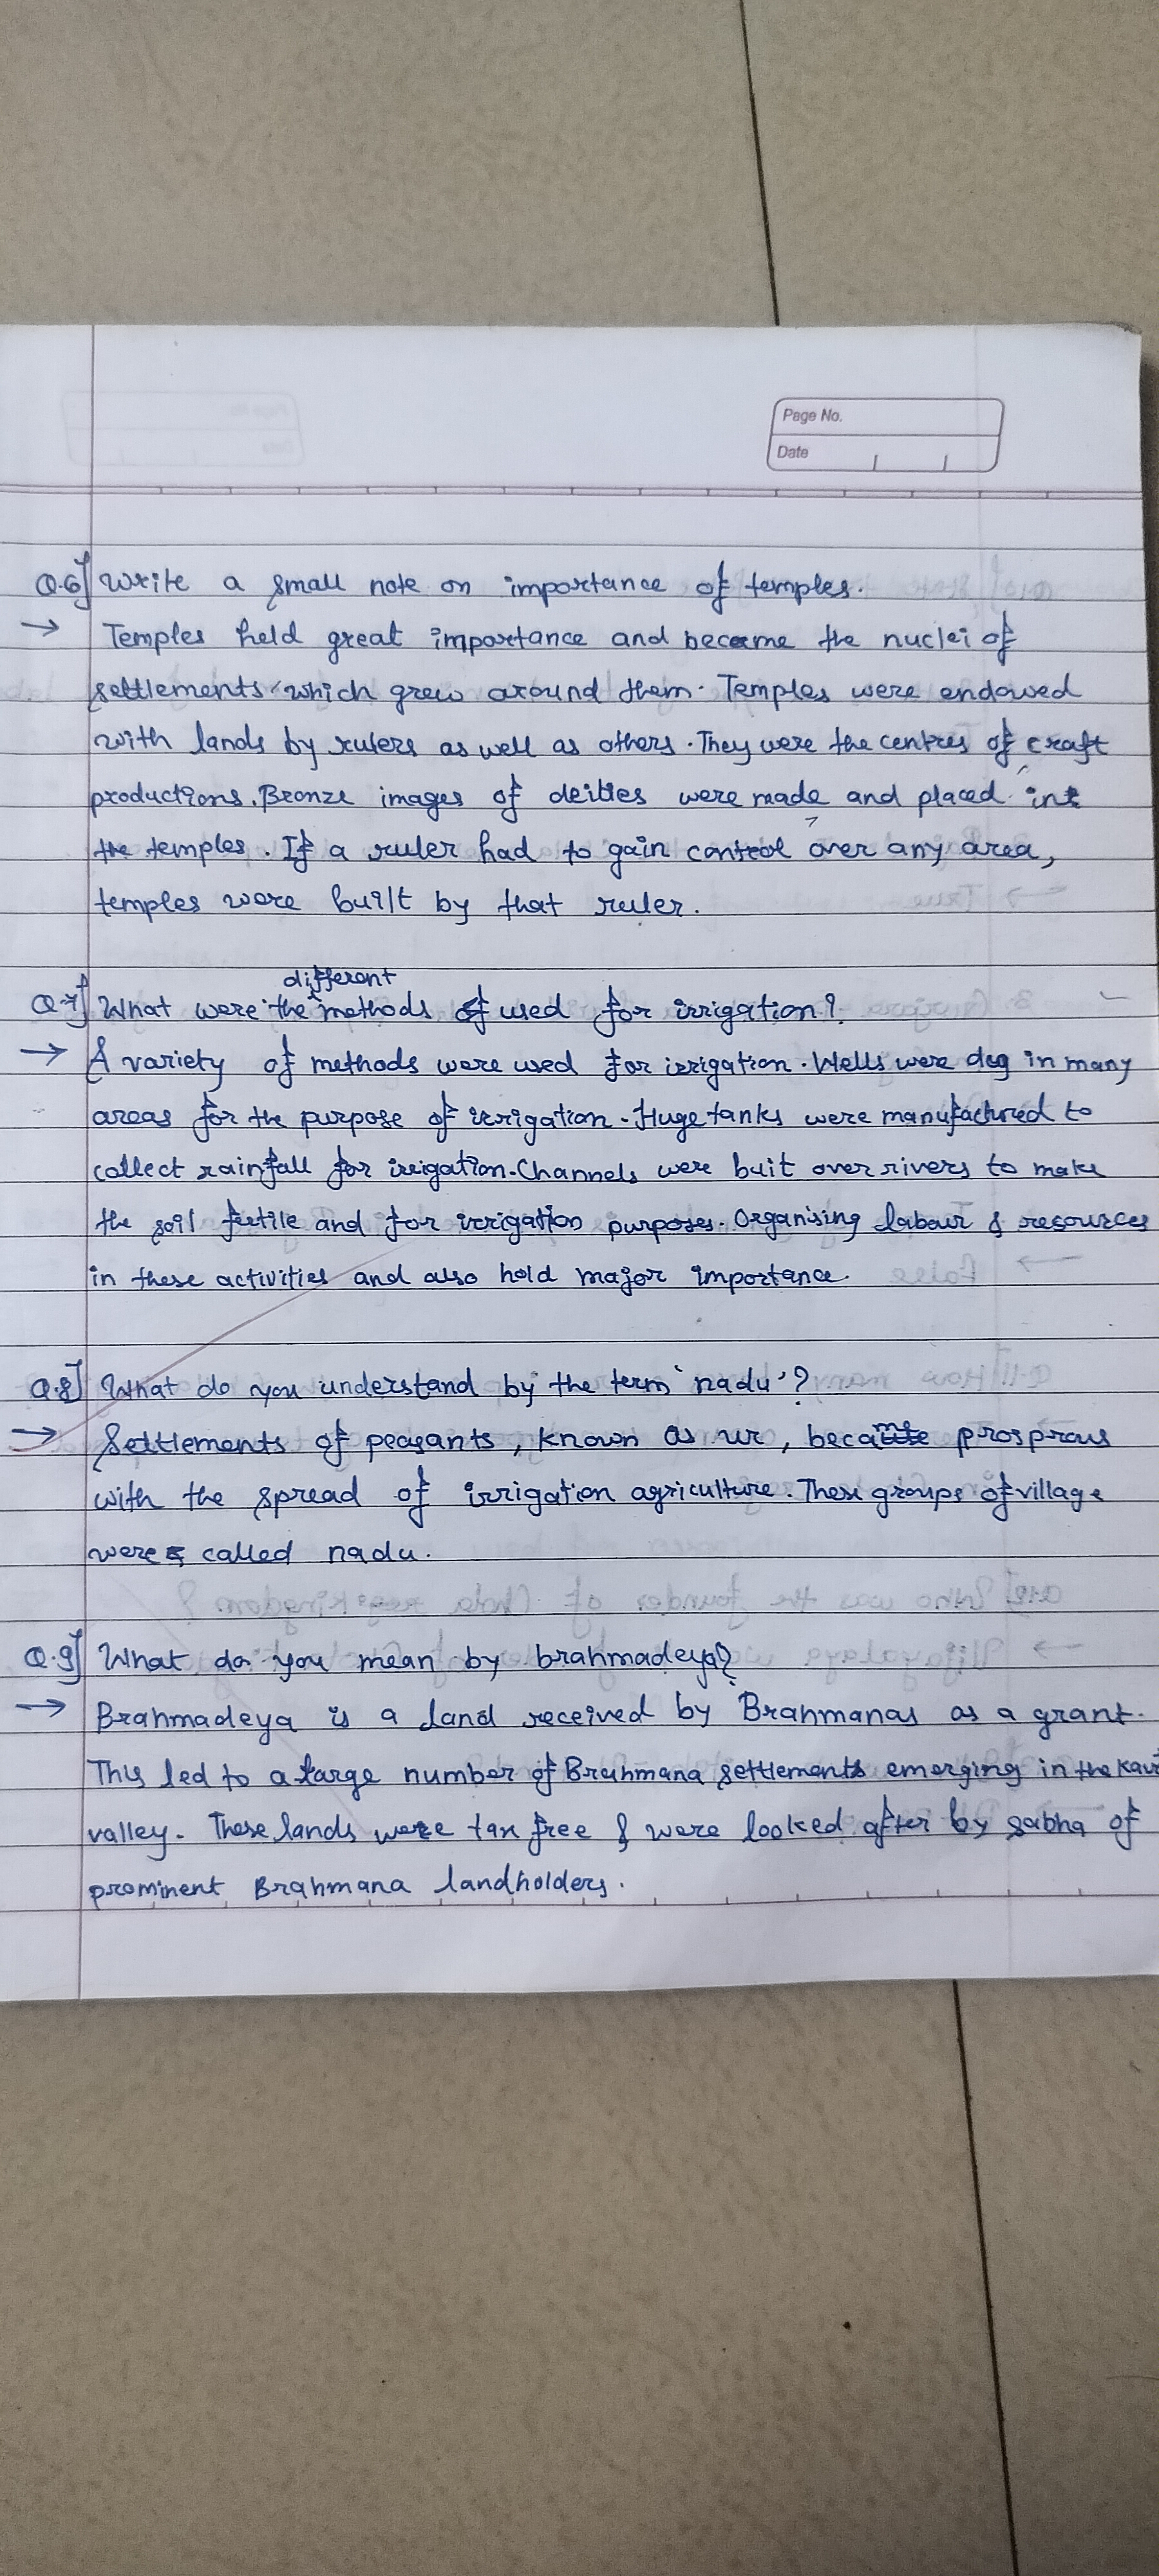 Page No.
Date
Q.6] Write a small note on importance of temples.
→ Temples held great importance and became the nuclei of
settlements which grew around them. Temples were endowed
with lands by rulers as well as others. They were the centres of craft
productions. Bronze images of deities were made and placed in
the temples. If a ruler had to gain control over any area,
temples were built by that ruler.
different
Q.7] What were the methods of used for irrigation?
→ A variety of methods were used for irrigation. Wells were dug in many
areas for the purpose of irrigation. Huge tanks were manufactured to
collect rainfall for irrigation. Channels were buit over rivers to make
the soil fertile and for irrigation purposes. Organising labour & resources
in these activities and also hold major importance.
Q.8] What do you understand by the term 'nadu'?
→ Settlements of peasants, known as ur, became prosprous
with the spread of irrigation agriculture. These groups of village
were called nadu.
Q.9] What do you mean by brahmadeya?
→ Brahmadeya is a land received by Brahmanas as a grant.
This led to a large number of Brahmana settlements emerging in the
valley. These lands were tax free & were looked after by sabha of
prominent Brahmana landholders.